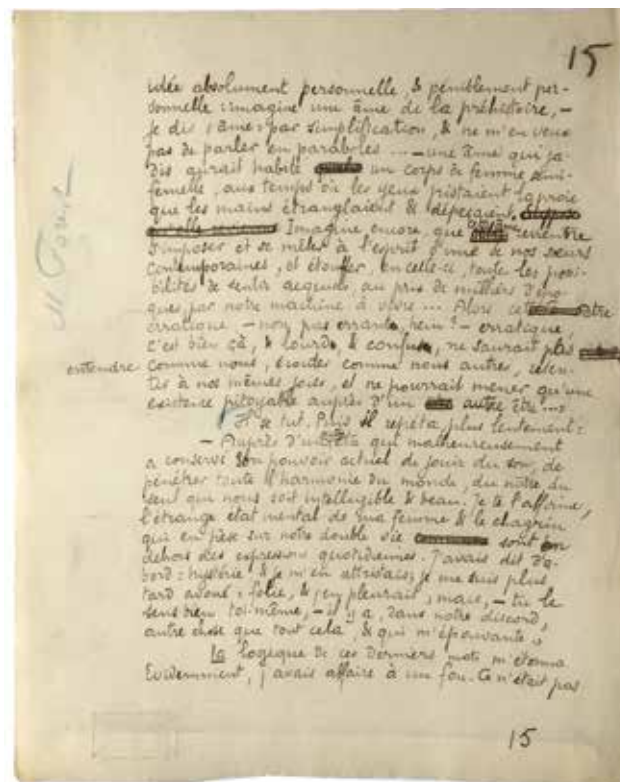 15
idée absolument personnelle, & péniblement per-
sonnelle : imagine une âme de la préhistoire, –
je dis « âme » par simplification, & ne m'en veux
pas de parler en paraboles ... – une âme qui ja-
dis aurait habité un corps de femme semi-
femelle, aux temps où les yeux pistaient la proie
que les mains étranglaient & dépeçaient.
Imagine encore, que revienne
s'imposer et se mêler à l'esprit d'une de nos sœurs
contemporaines, et étouffer, en celle-ci, toute les possi-
bilités de sentir acquises au prix de milliers d'épo-
ques par notre machine à vivre ... Alors cet être
erratique – non pas errante, hein ? – erratique
c'est bien çà, & lourd, & confus, ne saurait plus
entendre comme nous, écouter comme nous autres, reten-
tir à nos mêmes joies, et ne pourrait mener qu'une
existence pitoyable auprès d'un autre être ... »
Il se tut. Puis il répéta plus lentement :
– Auprès d'un être qui malheureusement
a conservé son pouvoir actuel de jouir du son, de
pénétrer toute l'harmonie du monde, du nôtre du
seul qui nous soit intelligible & beau. Je te l'affirme,
l'étrange état mental de ma femme & le chagrin
qui en pèse sur notre double vie sont en
dehors des expressions quotidiennes. J'avais dit d'a-
bord : hystérie, & je m'en attristais ; je me suis plus
tard avoué : folie, & j'en pleurais, mais, – tu le
sens bien toi-même, – il y a, dans notre discord,
autre chose que tout cela, & qui m'épouvante »
La logique de ces derniers mots m'étonna
Évidemment, j'avais affaire à un fou. Ce n'était pas
15